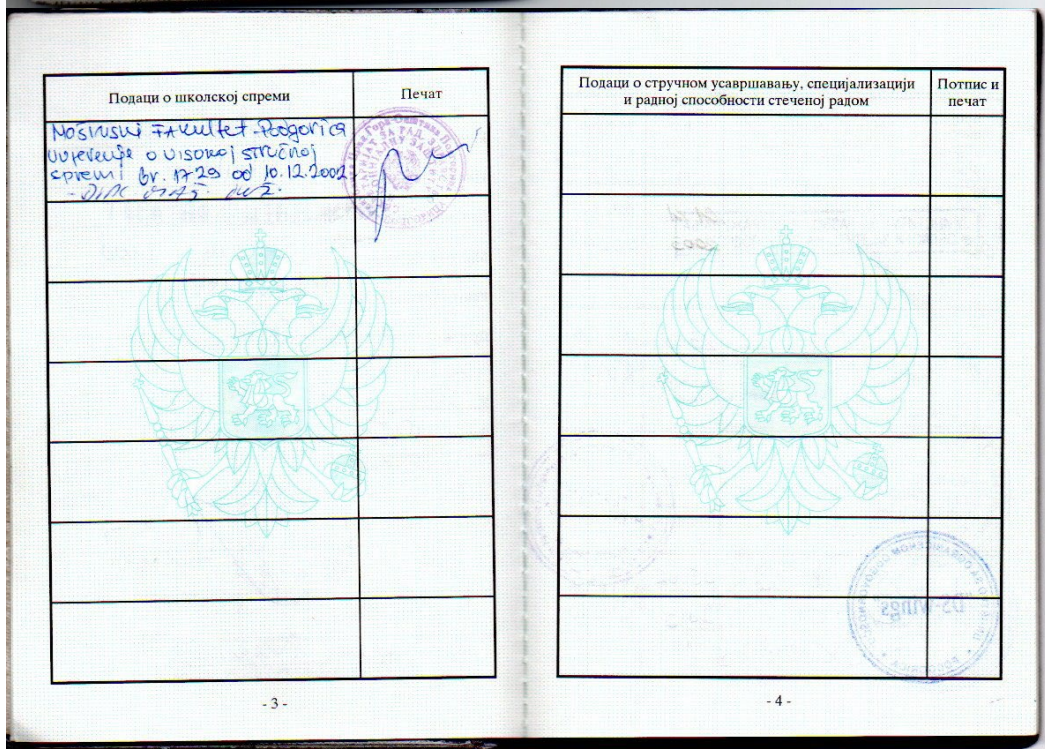 Подаци о школској спреми
Печат
Mašinski Fakultet-Podgorica
Uvjerenje o visokoj stručnoj
spremi br. 1729 od 10.12.2002.
- Dipl. maš. inž.
- 3 -
Подаци о стручном усавршавању, специјализацији
и радној способности стеченој радом
Потпис и
печат
"DS-Wings"
- 4 -